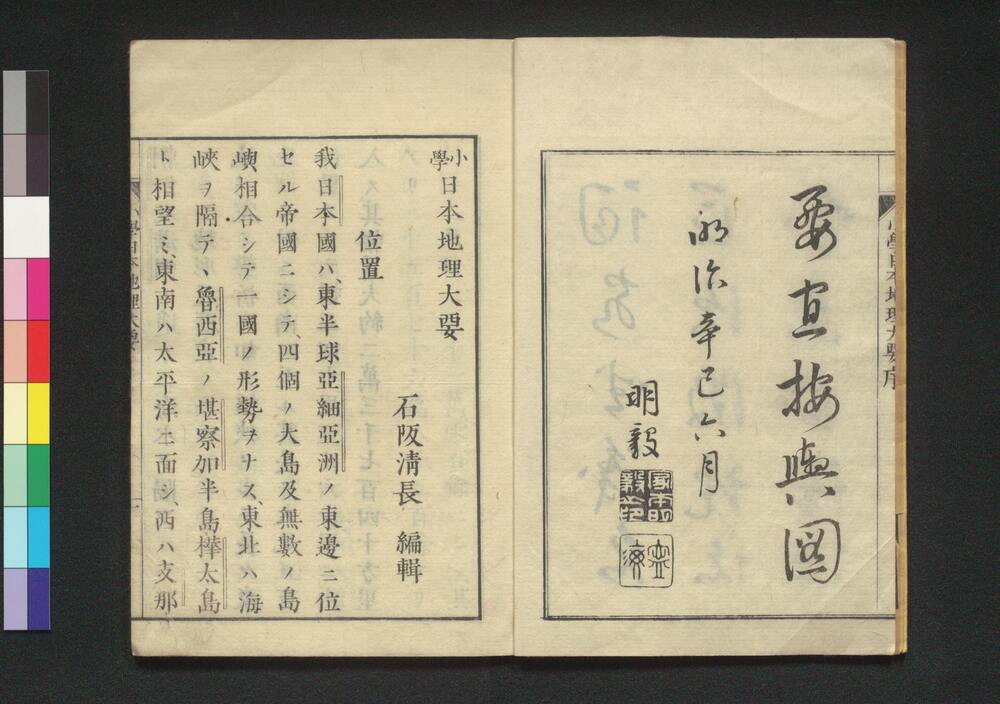 要宜按輿圖
明治辛巳六月
明毅
小學日本地理大要序
小學日本地理大要
石阪淸長 編輯
位置
我日本國ハ、東半球亞細亞洲ノ東邊ニ位
セル帝國ニシテ、四個ノ大島及無數ノ島
嶼相合シテ一國ノ形勢ヲナス、東北ハ海
峽ヲ隔テヽ魯西亞ノ堪察加半島樺太島
ト相望ミ、東南ハ太平洋ニ面シ、西ハ支那
小學日本地理大要